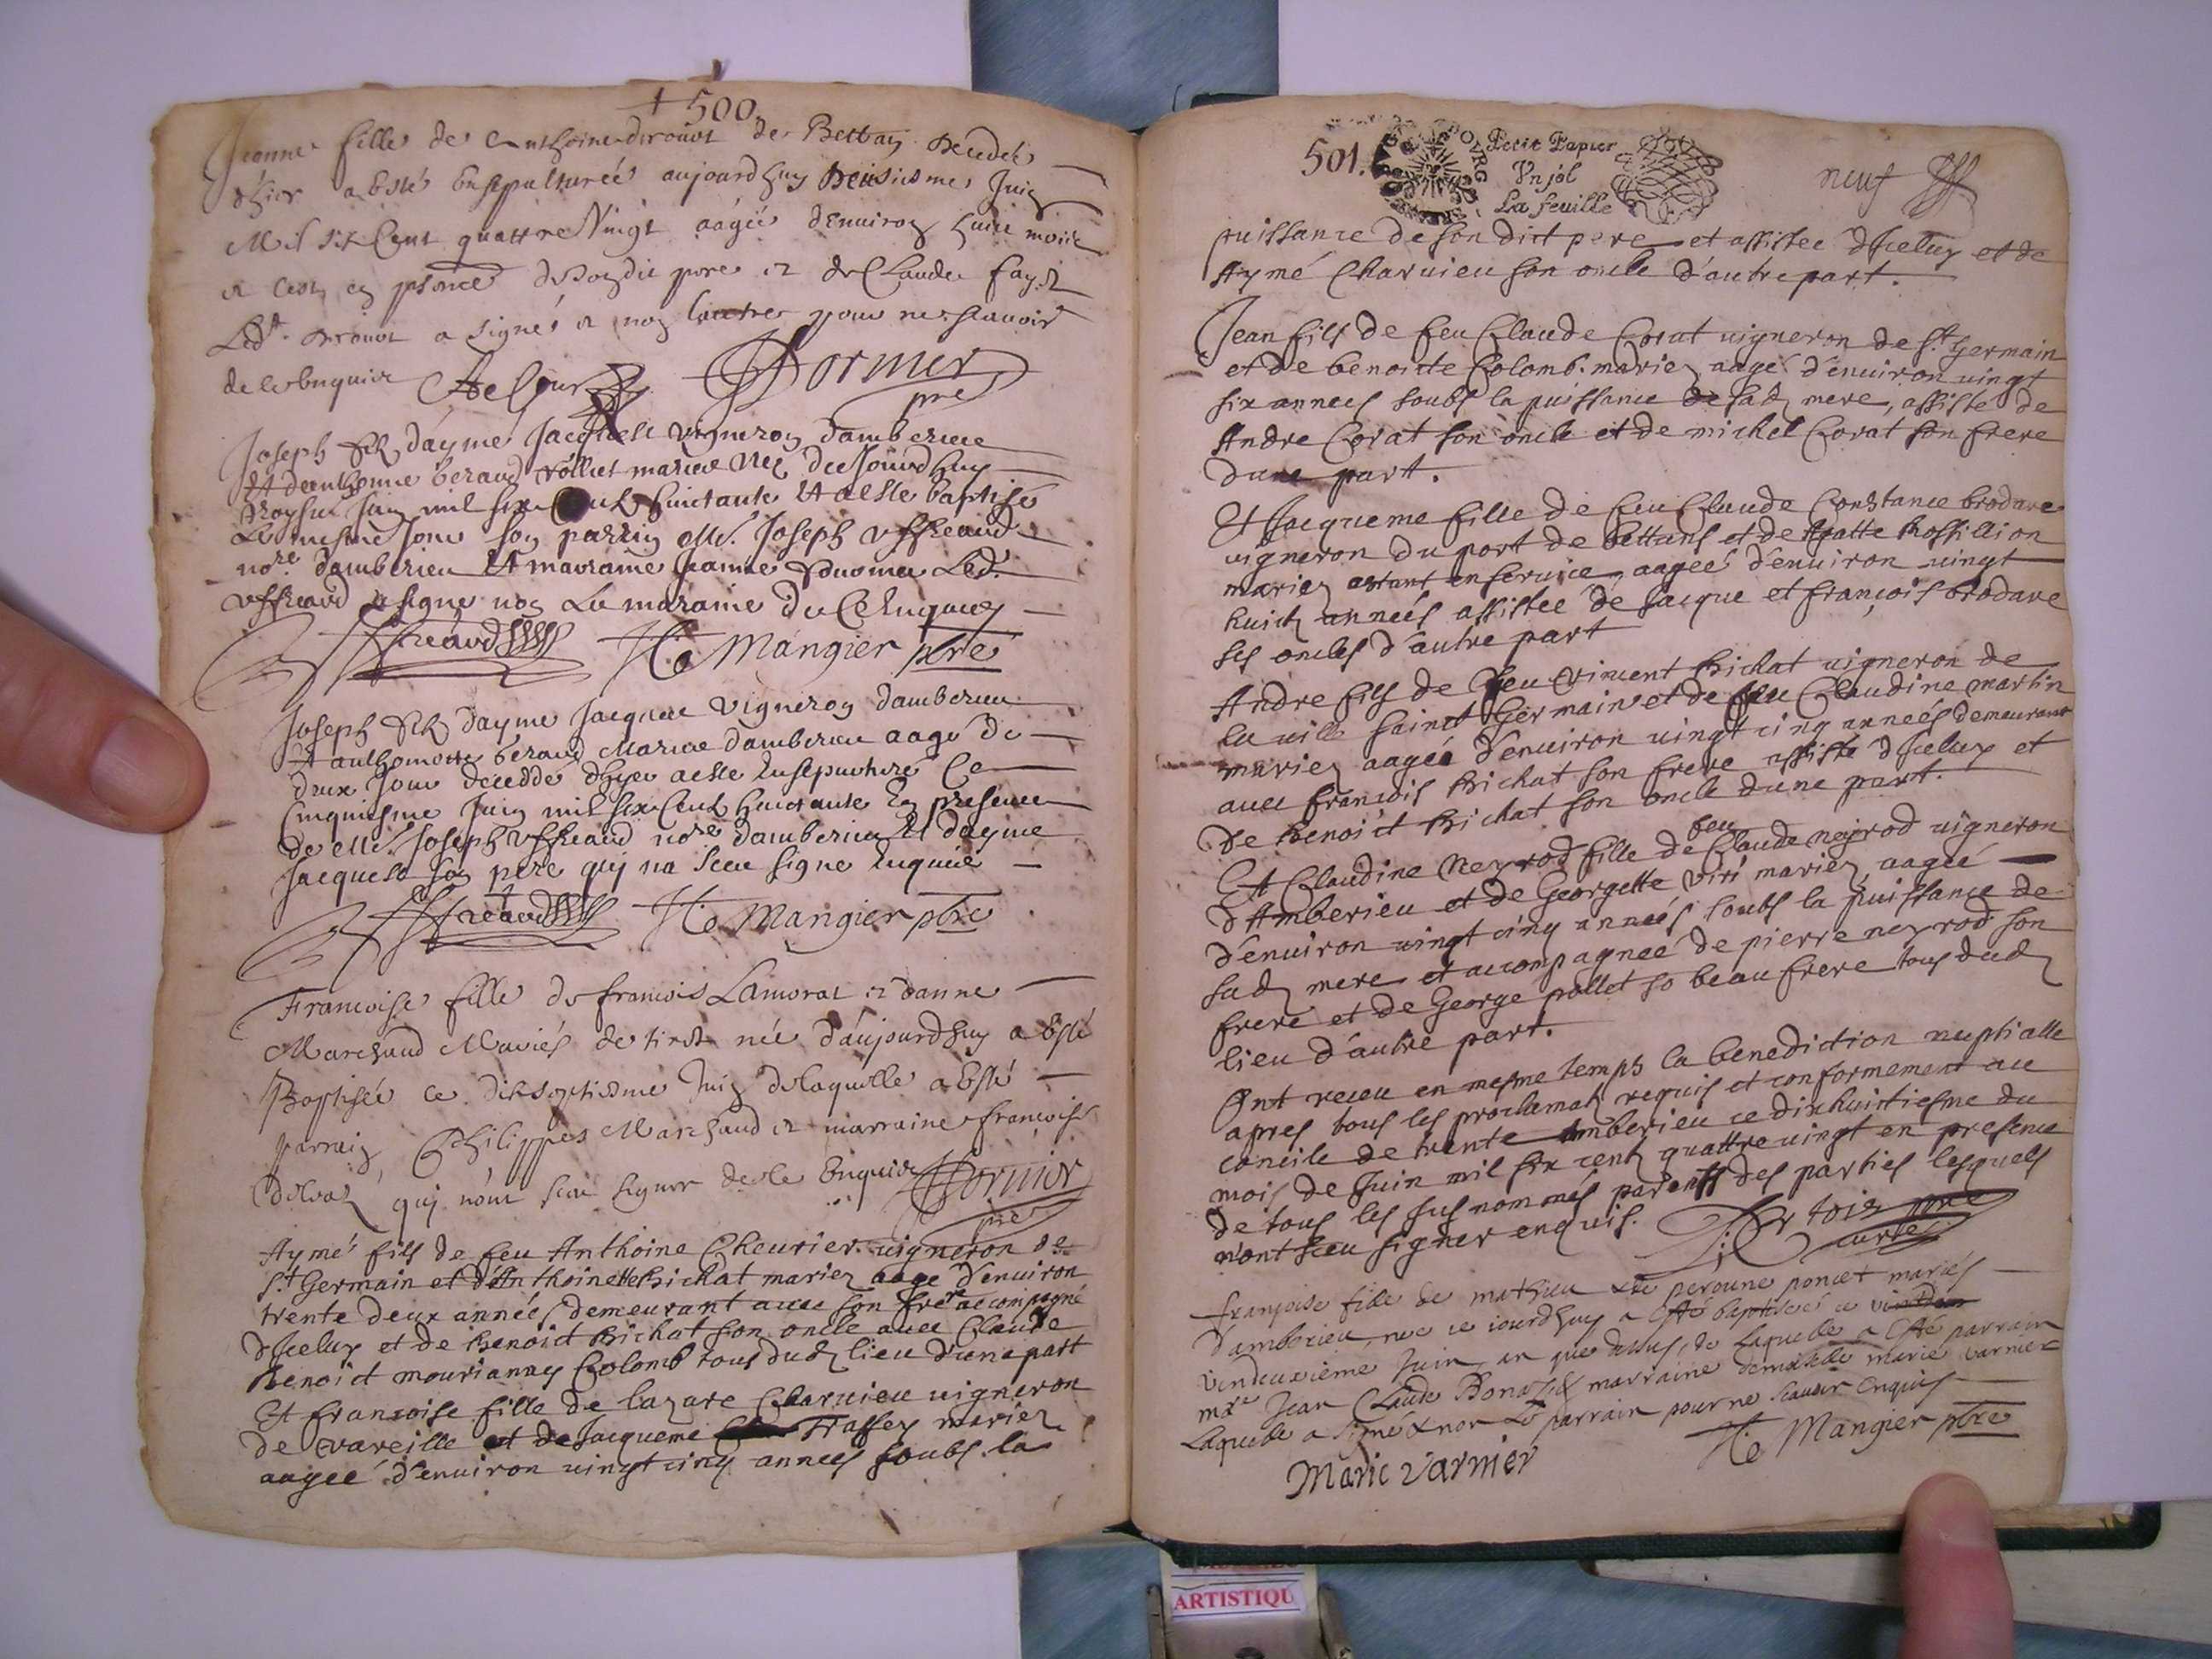 + 500
Jeanne fille de Anthoine drouot de Bettan decedée
d'hier a esté ensepulturée aujourdhuy deusiesme Juin
Mil six Cent quattre Vingt aagée d'Enuiron huict mois
et Cest en pnce de son dit pere et de Claude
Led. drouot a signé et non l'autre pour ne scauoir
de ce enquis Dormier
pre
Joseph fils d'ayme Jacquese vigneron d'amberieu
Et danthonne beraud marié Nez de Jourdhuy
Troysie Juin mil six Cent huictante Et a este baptisé
Le mesme Jour Son parrin Me. Joseph Uffreaud
nore d'amberieu Et marraine Jeanne Led.
Uffreaud a signe non La maraine de Ce Enquise
Uffreaud He Mangier pbre
Joseph fils dayme Jacquese vigneron d'amberieu
Et anthonette beraud Mariez d'amberieu aagé de
deux Jour decedde d'hyer a este Ensepulturé Ce
Cinquiesme Juin mil six Cent huictante En presence
de Me. Joseph Uffreaud nore d'amberieu Et dayme
Jacquese son pere qui na sceu signe Enquis
Uffreaud He Mangier pbre
Francoise fille de francois Lamorat et d'anne
Marchand Mariés de tiret née d'aujourdhuy a Esté
Baptisée ce dixseptiesme Juin de laquelle a Esté
parrain Philippes Marchand et marraine francoise
qui n'ont sceu signer de ce Enquis Dormier
pre
Aymé fils de feu Anthoine Cheurier vigneron de
St Germain et d'Anthoinette Bichat mariez aage d'enuiron
trente deux années demeurant auec son frere accompagné
d'Iceluy et de Benoict Bichat son oncle auec Claude
Benoict mourianney Colomb tous dud lieu d'une part
Et francoise fille de lazare Charuieu vigneron
de vareille et de Jacqueme Trassey mariez
aagee d'enuiron uingt cinq annees soubs la
501.
Petit Papier
Vn sol
La feuille
neuf
puissance de son dict pere et assistee d'Iceluy et de
Aymé Charuieu son oncle d'autre part.
Jean fils de feu Claude Corat uigneron de St. Germain
et de benoicte Colomb mariez aagé d'enuiron uingt
six annees soubs la puissance de sad mere, assisté de
Andre Corat son oncle et de michel Corat son frere
d'une part.
Et Jacqueme fille de feu Claude Constance brodare
uigneron du port de bettans et de Agatte Rossillion
mariez estant en seruice, aageé d'enuiron uingt
huict anneés assistee de Jacque et françois brodare
ses oncles d'autre part
Andre fils de feu vincent Bichat uigneron de
la ville sainct Germain et de feu Claudine martin
mariez aageé d'enuiron uingt cinq anneés demeurant
auec francois Bichat son frere assisté d'Iceluy et
de Benoict Bichat son oncle dune part.
Et Claudine Neyrod fille de feu Claude neyrod uigneron
d'Amberieu et de Georgette viri mariez, aageé
d'enuiron uingt cinq anneés soubs la puissance de
sad mere et accompagneé de pierre neyrod son
frere et de George pollet so beau frere tous dud
lieu d'autre part.
Ont receu en mesme temps la benediction nuptialle
apres tous les proclamatz requis et conformement au
concile de trente Amberieu ce dixhuictiesme du
mois de Juin mil six centz quattre uingt en presence
de tous les susnommés parents des parties lesquels
n'ont sceu signer enquis.
pre
curé
françoise fille de mathieu et de peronne poncet mariés
d'amberieu, nee ce iourdhuy a esté baptisée ce
vindeuxieme Juin, an que dessus, de laquelle a esté parrain
mre Jean Claude Bona marraine demoiselle marie varnier
Laquelle a signé & non Le parrain pour ne scauoir enquis
He Mangier pbre
Marie varnier
ARTISTIQU